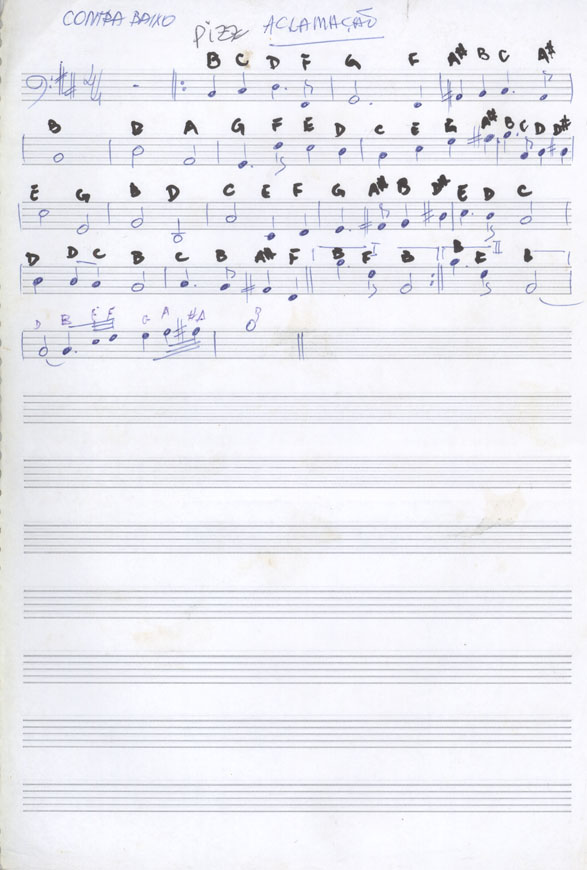 CONTRA BAIXO
Pizz ACLAMAÇÃO
B C D F G F A# B C A#
B D A G F E D C E E A# B C D D#
E G B D C E F G A# B D# E D C
D D C B C B A# F B I F B B E II
D B E E G A #A